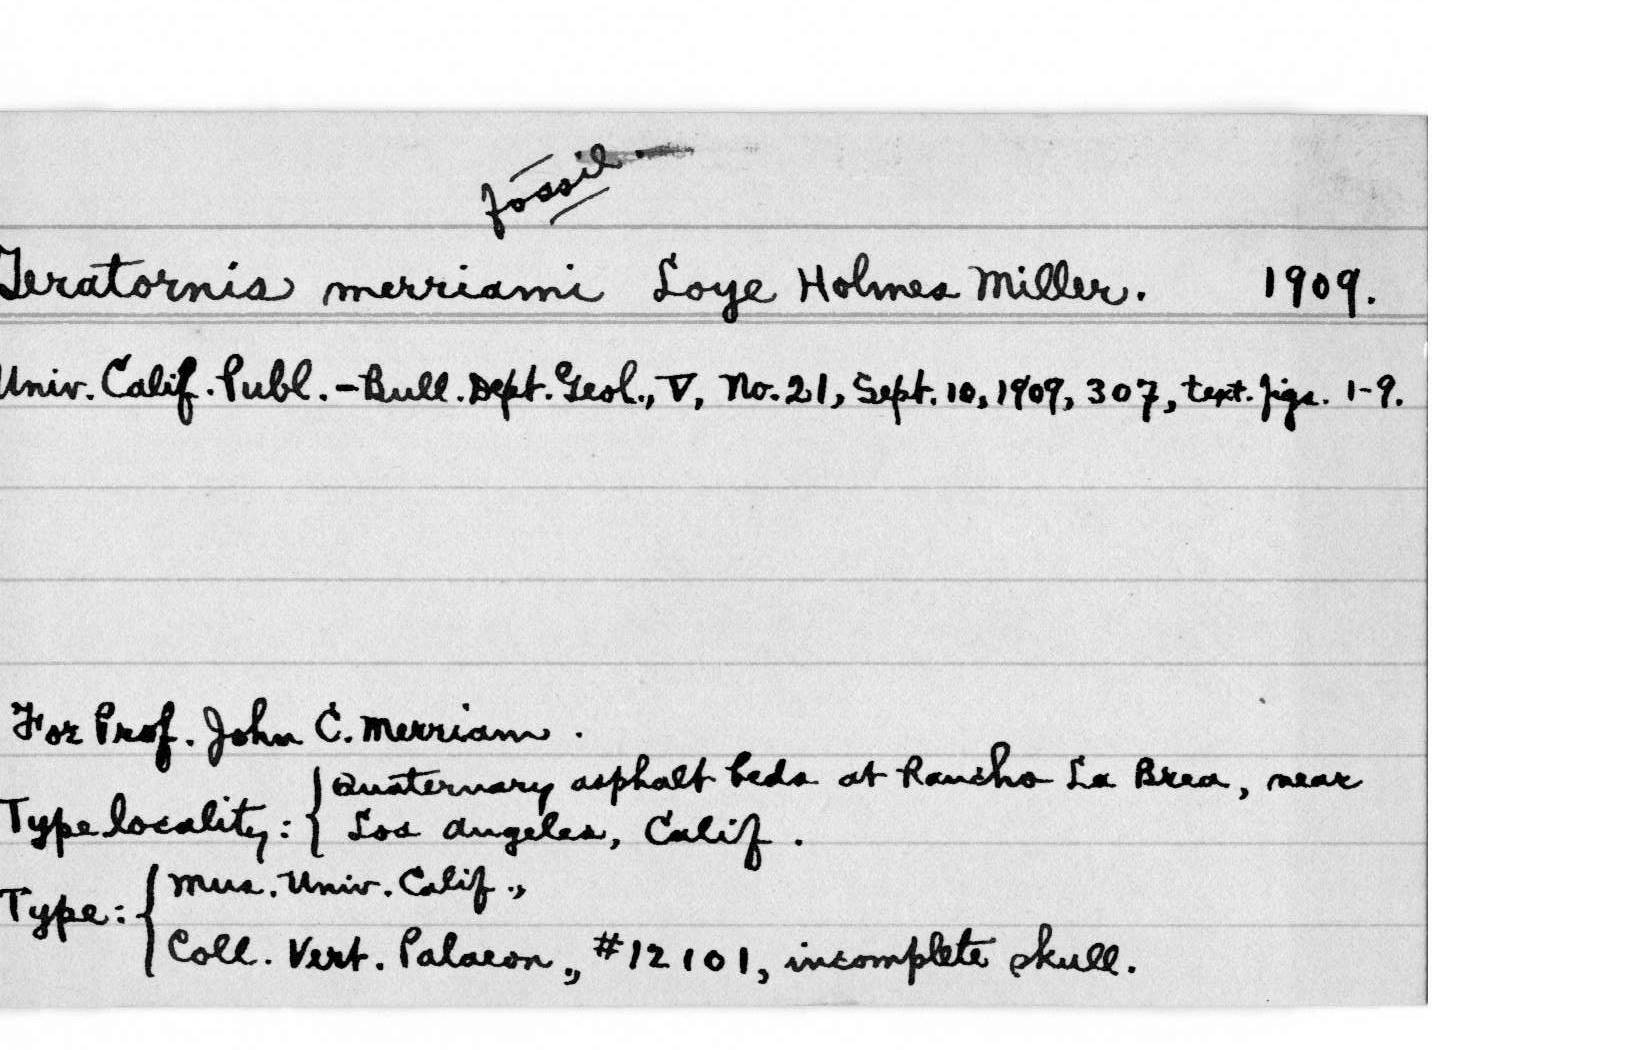 fossil.
Teratornis merriami Loye Holmes Miller. 1909.
Univ. Calif. Publ. - Bull. Dept. Geol., V, No. 21, Sept. 10, 1909, 307, text. figs. 1-9.
For Prof. John C. Merriam.
Type locality: { Quaternary asphalt beds at Rancho La Brea, near
Los Angeles, Calif.
Type: { Mus. Univ. Calif.,
Coll. Vert. Palaeon., #12101, incomplete skull.